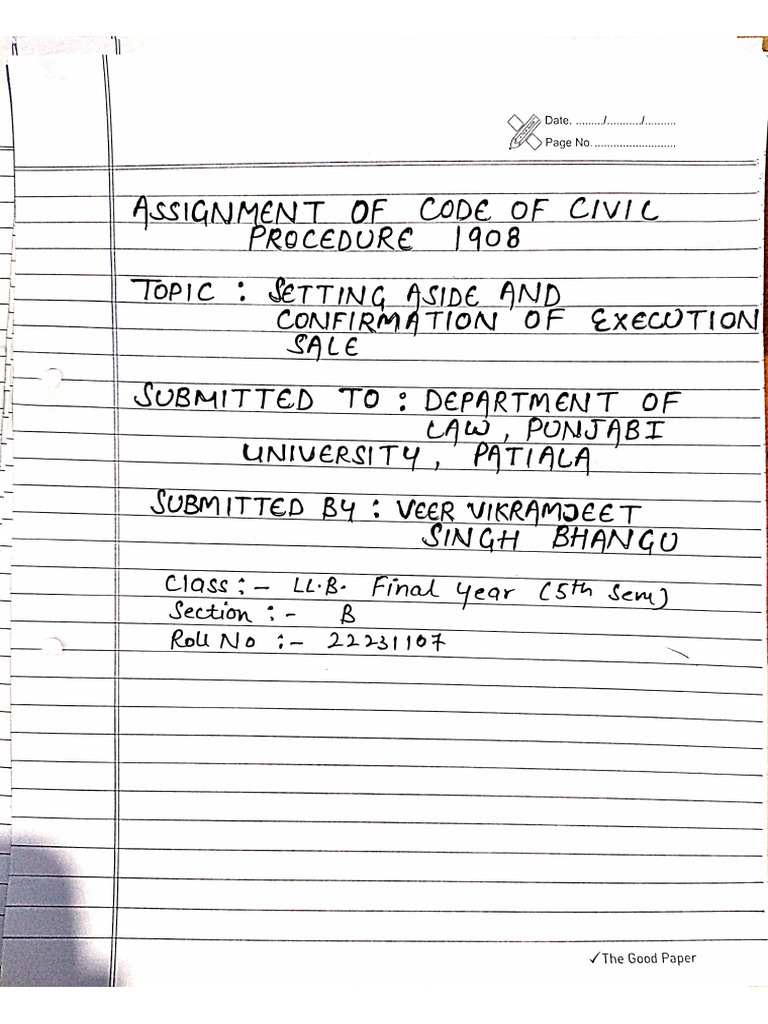 Date. ........./.........../..........
Page No. ...........................
ASSIGNMENT OF CODE OF CIVIL
PROCEDURE 1908
TOPIC : SETTING ASIDE AND
CONFIRMATION OF EXECUTION
SALE
SUBMITTED TO : DEPARTMENT OF
LAW, PUNJABI
UNIVERSITY, PATIALA
SUBMITTED BY : VEER VIKRAMJEET
SINGH BHANGU
Class :- LL.B. Final Year (5th Sem)
Section :- B
Roll No :- 22231107
✓The Good Paper